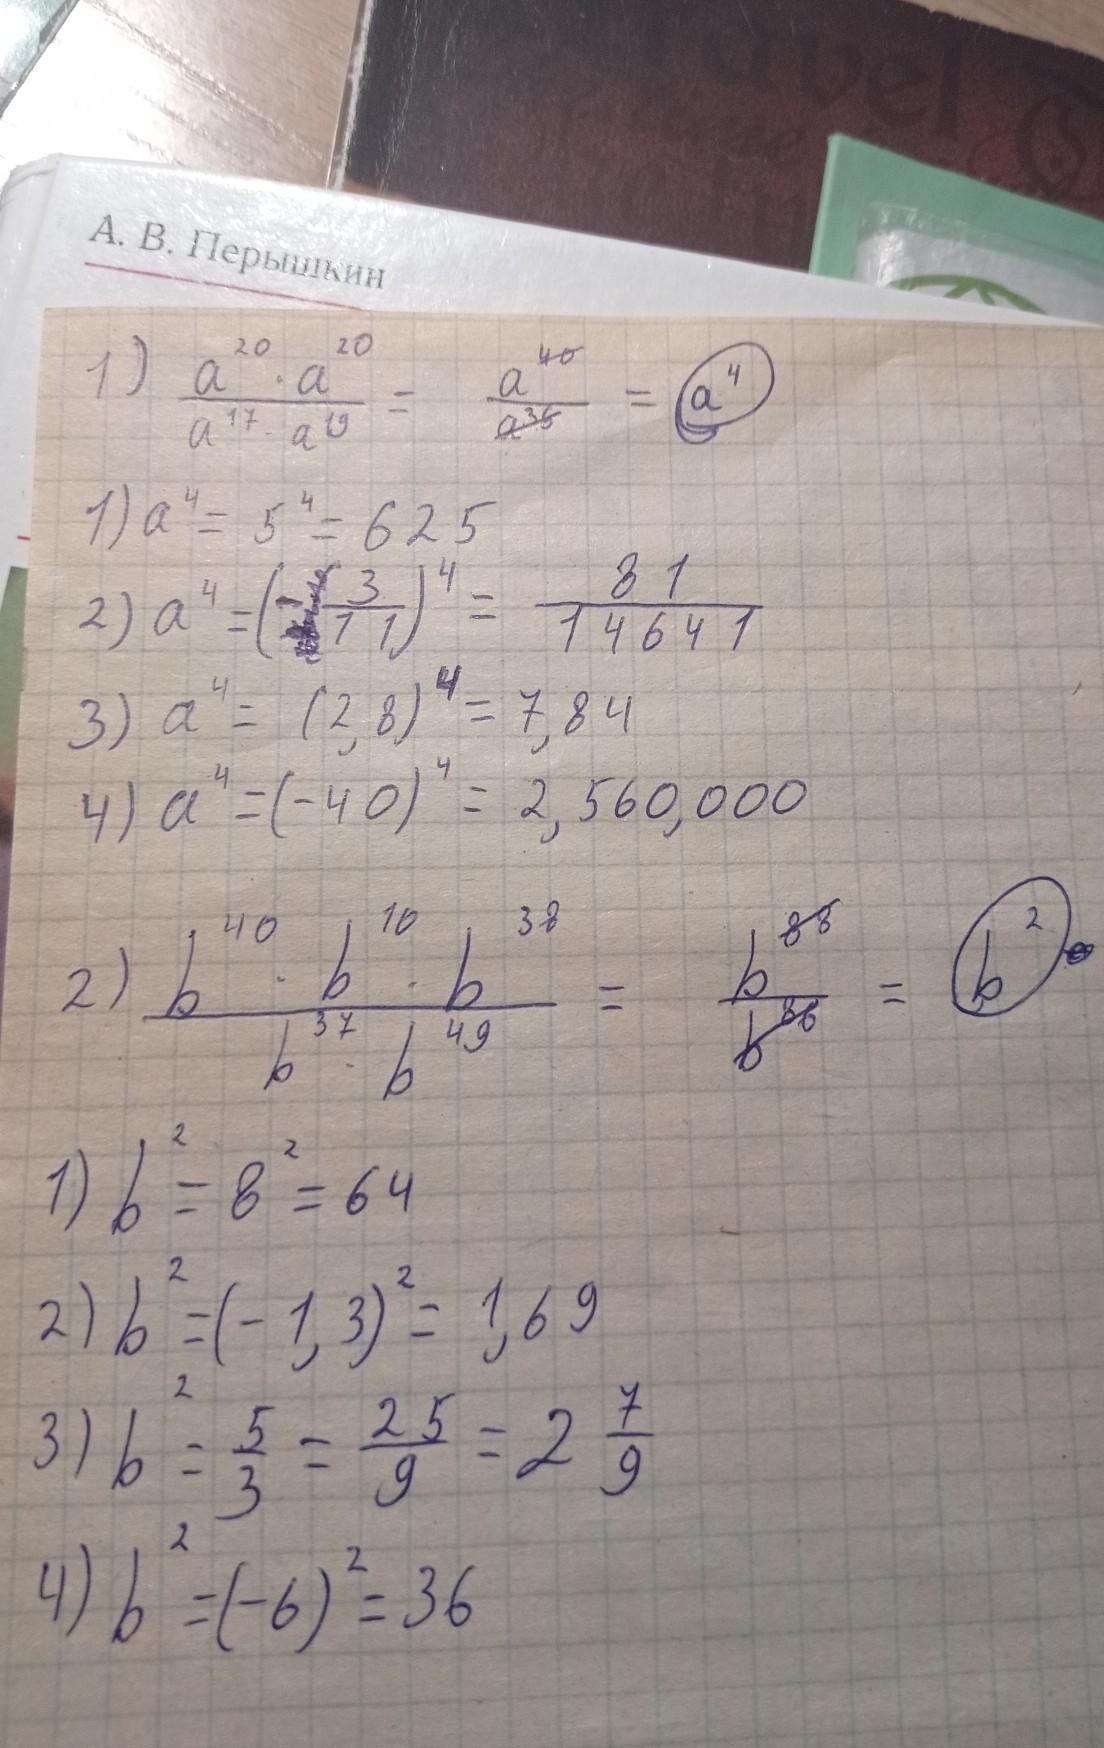 avel
А. В. Перышкин
1) a²⁰ · a²⁰ / a¹⁷ · a¹⁹ = a⁴⁰ / a³⁶ = a⁴
1) a⁴ = 5⁴ = 625
2) a⁴ = (-3/11)⁴ = 81/14641
3) a⁴ = (2,8)⁴ = 7,84
4) a⁴ = (-40)⁴ = 2,560,000
2) b⁴⁰ · b¹⁰ · b³⁸ / b³⁷ · b⁴⁹ = b⁸⁸ / b⁸⁶ = b²
1) b² = 8² = 64
2) b² = (-1,3)² = 1,69
3) b² = 5/3 = 25/9 = 2 7/9
4) b² = (-6)² = 36